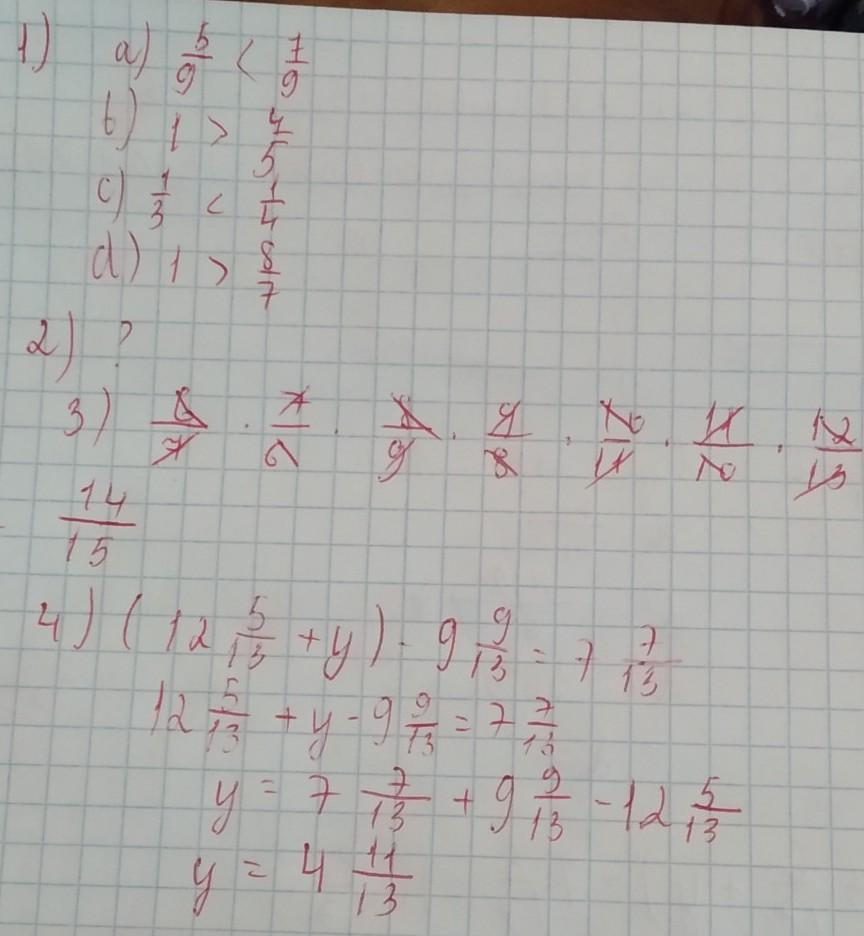 1) a) 5/9 < 7/9
b) 1 > 4/5
c) 1/3 < 1/4
d) 1 > 8/7
2) ?
3) 6/7 · 7/6 · 8/9 · 9/8 · 10/11 · 11/10 · 12/13
14/15
4) (12 5/13 + y) - 9 9/13 = 7 7/13
12 5/13 + y - 9 9/13 = 7 7/13
y = 7 7/13 + 9 9/13 - 12 5/13
y = 4 11/13